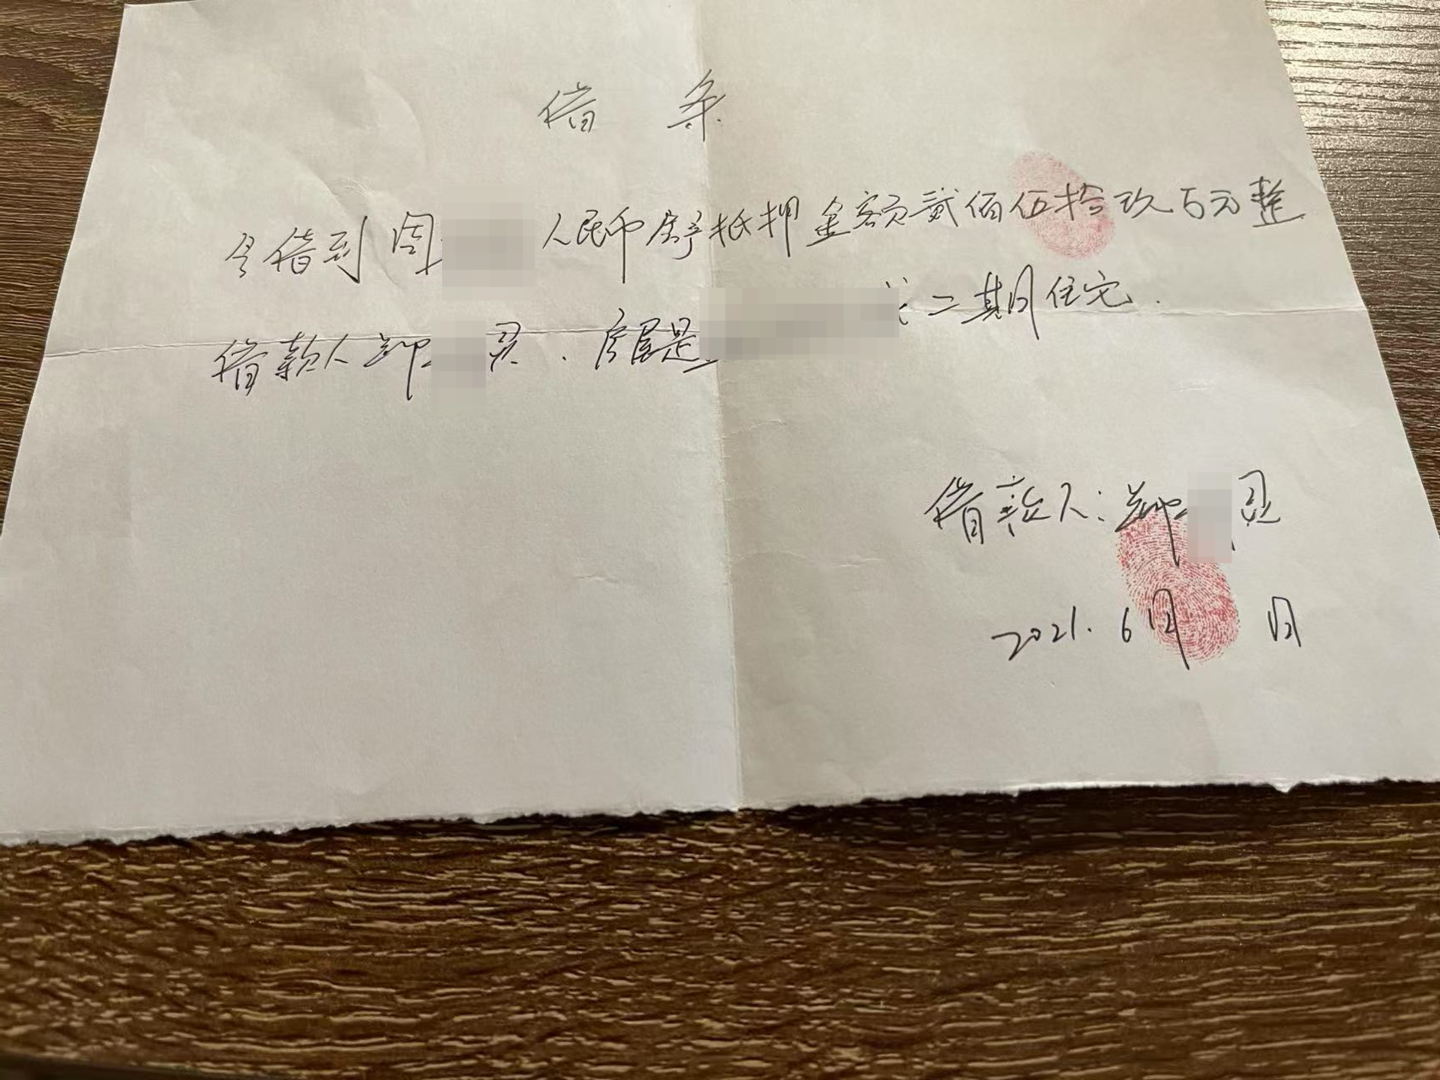 借 条
今借到周 人民币房产抵押金额贰佰伍拾玖万元整
借款人郑 灵.房屋是 二期住宅.
借款人:郑 灵
2021.6月 日